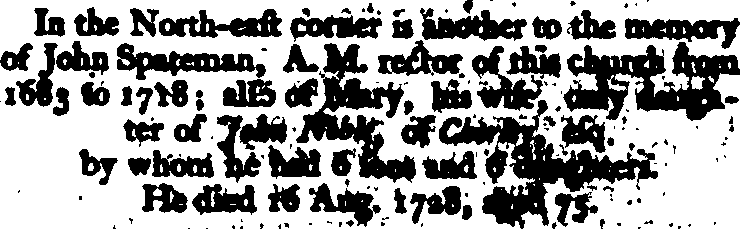 In the North-eaſt corner is another to the memory
of John Spateman, A. M. rector of this church from
1683 to 1728; alſo of Mary, his wife, only daugh-
ter of John Noble, of eſq.
by whom he had 6 ſons and 6 daughters.
He died 16 Aug. 1728, aged 75.